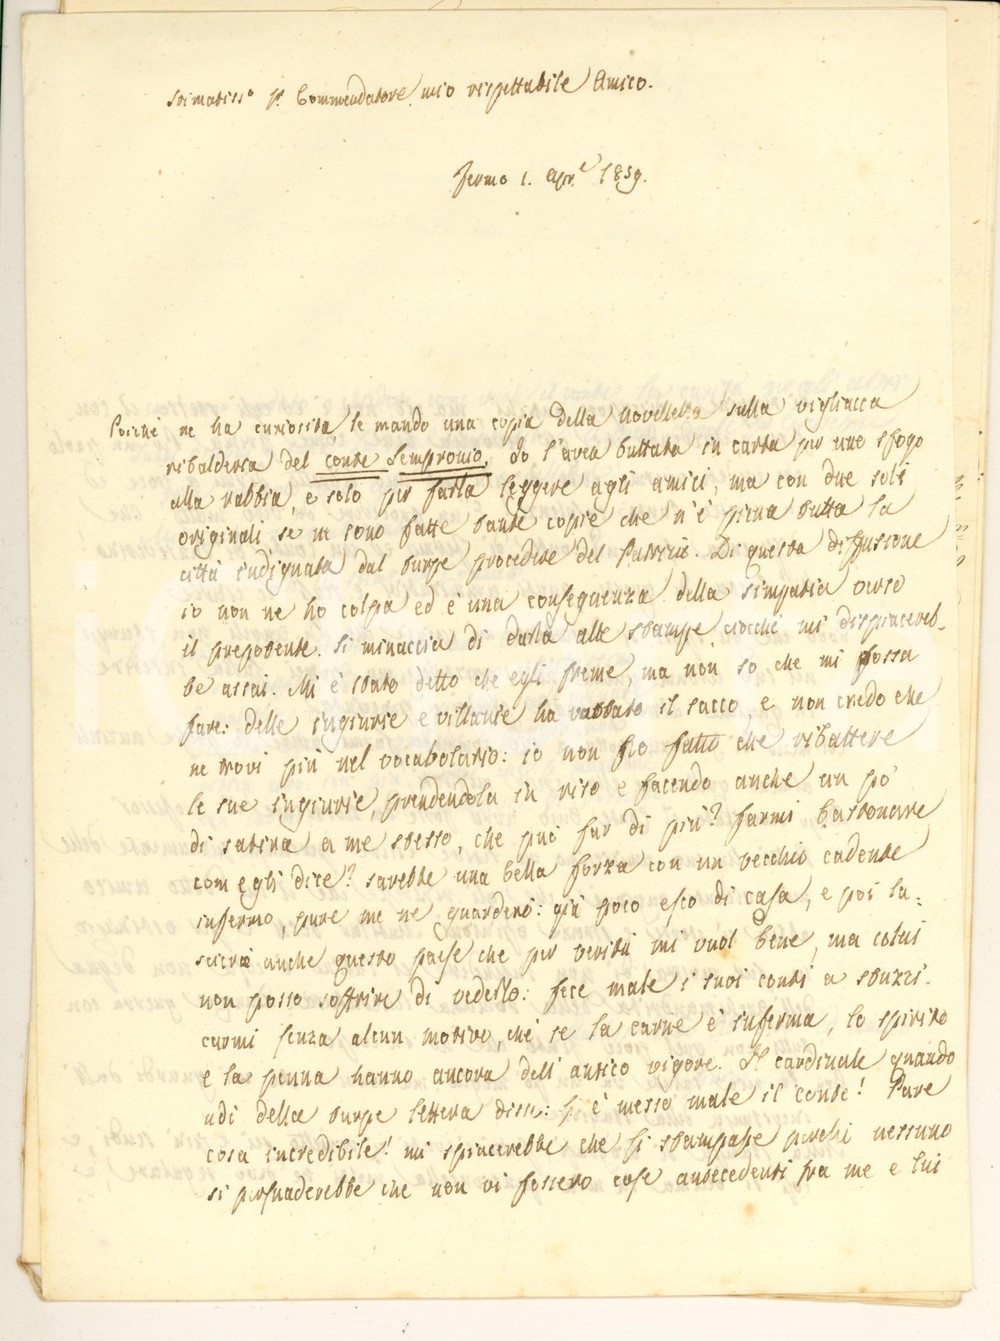 Stimatiss.o Sr. Commendatore mio rispettabile Amico.
Fermo 1. Apr.e 1859.
Poiché ne ha curiosità, le mando una copia della novelletta sulla vigliacca
ribalderia del conte Sempronio. Io l'avea buttata in carta per uno sfogo
alla rabbia, e solo per farla leggere agli amici, ma con due soli
originali se ne sono fatte tante copie che n'è piena tutta la
città indignata dal turpe procedere del Di questa diffusione
io non ne ho colpa ed è una conseguenza della simpatia verso
il prepotente. Si minaccia di darla alle stampe ciocché mi dispiacereb-
be assai. Mi è stato detto che egli freme, ma non so che mi possa
fare: delle ingiurie e villanie ha votato il sacco, e non credo che
ne trovi più nel vocabolario: io non ho fatto che ribattere
le sue ingiurie, prendendola in riso e facendo anche un po'
di satira a me stesso, che può far di più? farmi bastonare
com'egli dice? sarebbe una bella forza con un vecchio cadente
infermo, pure me ne guarderò: già poco esco di casa, e poi la-
scierò anche questo paese che per verità mi vuol bene, ma colui
non posso soffrire di vederlo: fece male i suoi conti a stuzzi-
carmi senza alcun motivo, ché se la carne è inferma, lo spirito
e la penna hanno ancora dell'antico vigore. Il cardinale quando
udì della turpe lettera disse: si è messo male il conte! Pare
cosa incredibile! mi spiacerebbe che si stampasse perché nessuno
si persuaderebbe che non vi fossero cose antecedenti fra me e lui